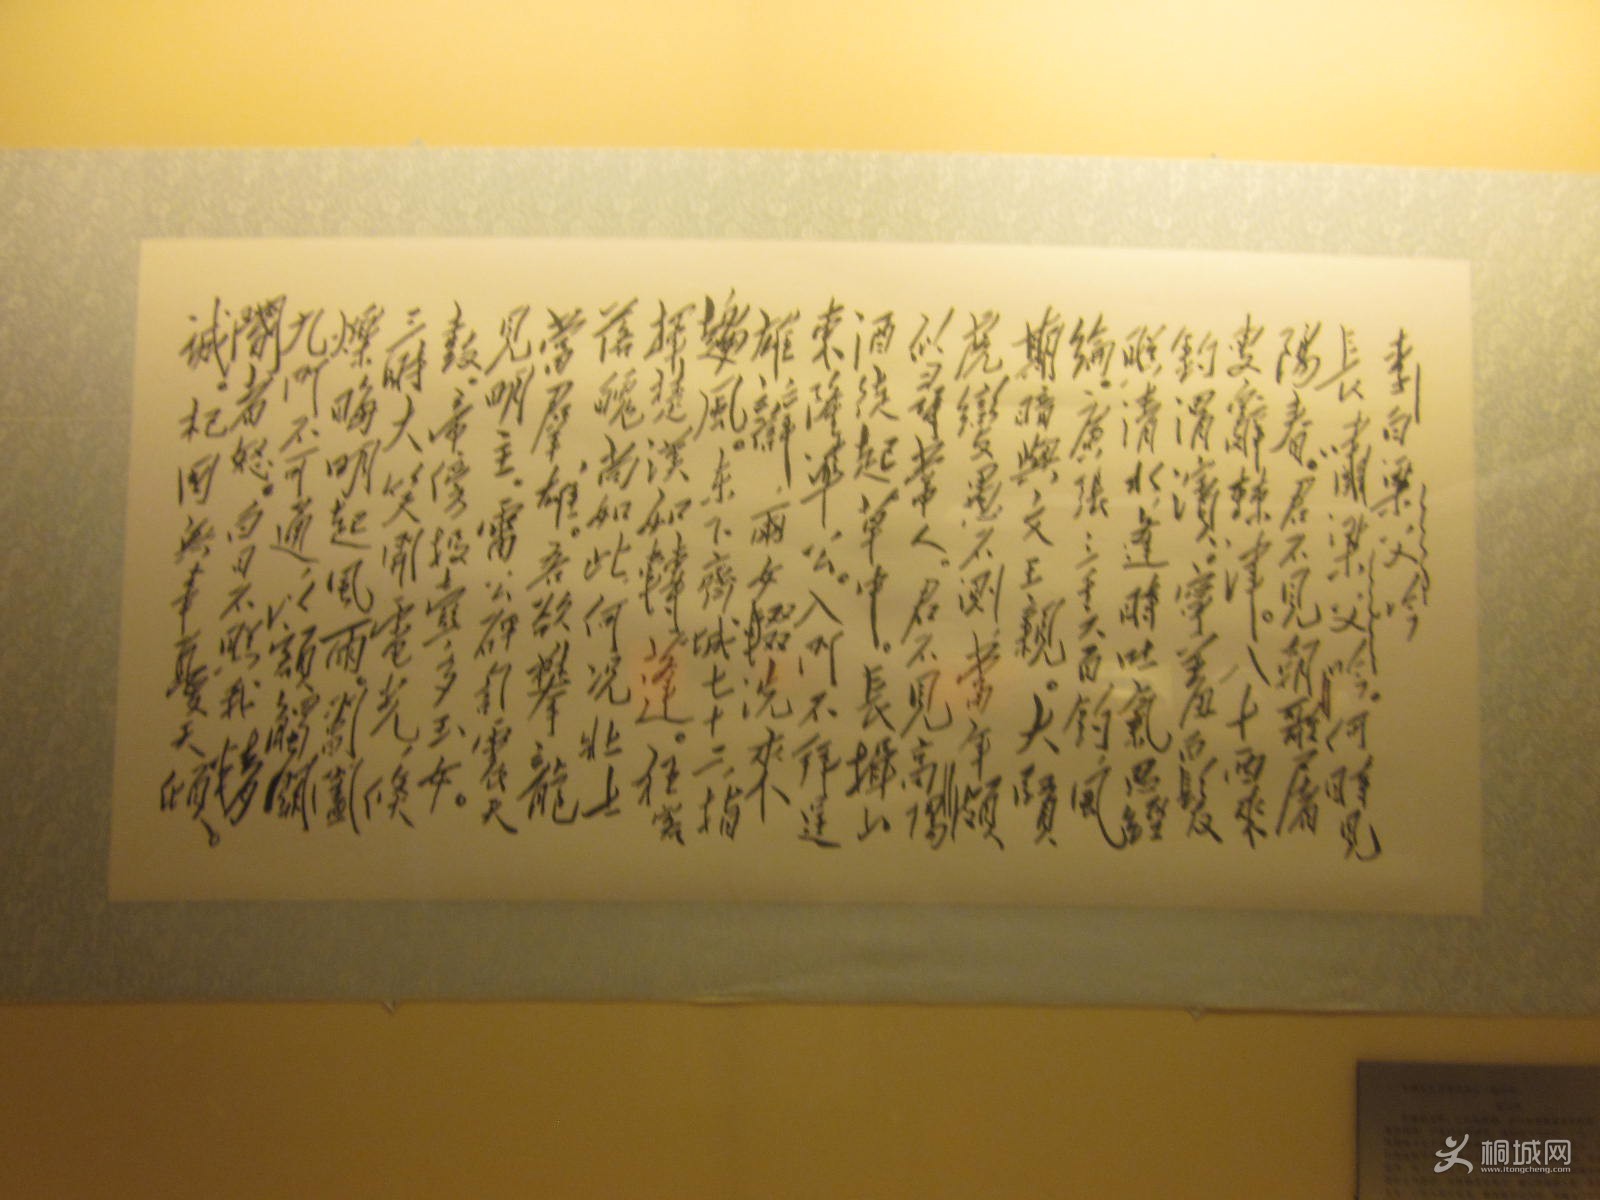 李白梁父吟
長嘯梁父吟。何時見
陽春。君不見朝歌屠
叟辭棘津。八十西來
釣渭濱。寧羞白髮
照清水,逢時吐氣思經
綸。廣張三千六百釣,風
期暗與文王親。大賢
虎變愚不測,當年頗
似尋常人。君不見高陽
酒徒起草中。長揖山
東隆準公。入門不拜逞
雄辯,兩女輟洗來
趨風。东下齊城七十二,指
揮楚漢如轉蓬。狂客
落魄尚如此,何況壯士
當羣雄。吾欲攀龍
見明主。雷公砰訇震天
鼓。帝傍投壺多玉女。
三時大笑開電光,倏
爍晦明起風雨。閶闔
九門不可通,以額觸關
閽者怒。白日不照我精
誠。杞國無事憂天傾。
桐城网
www.itongcheng.com